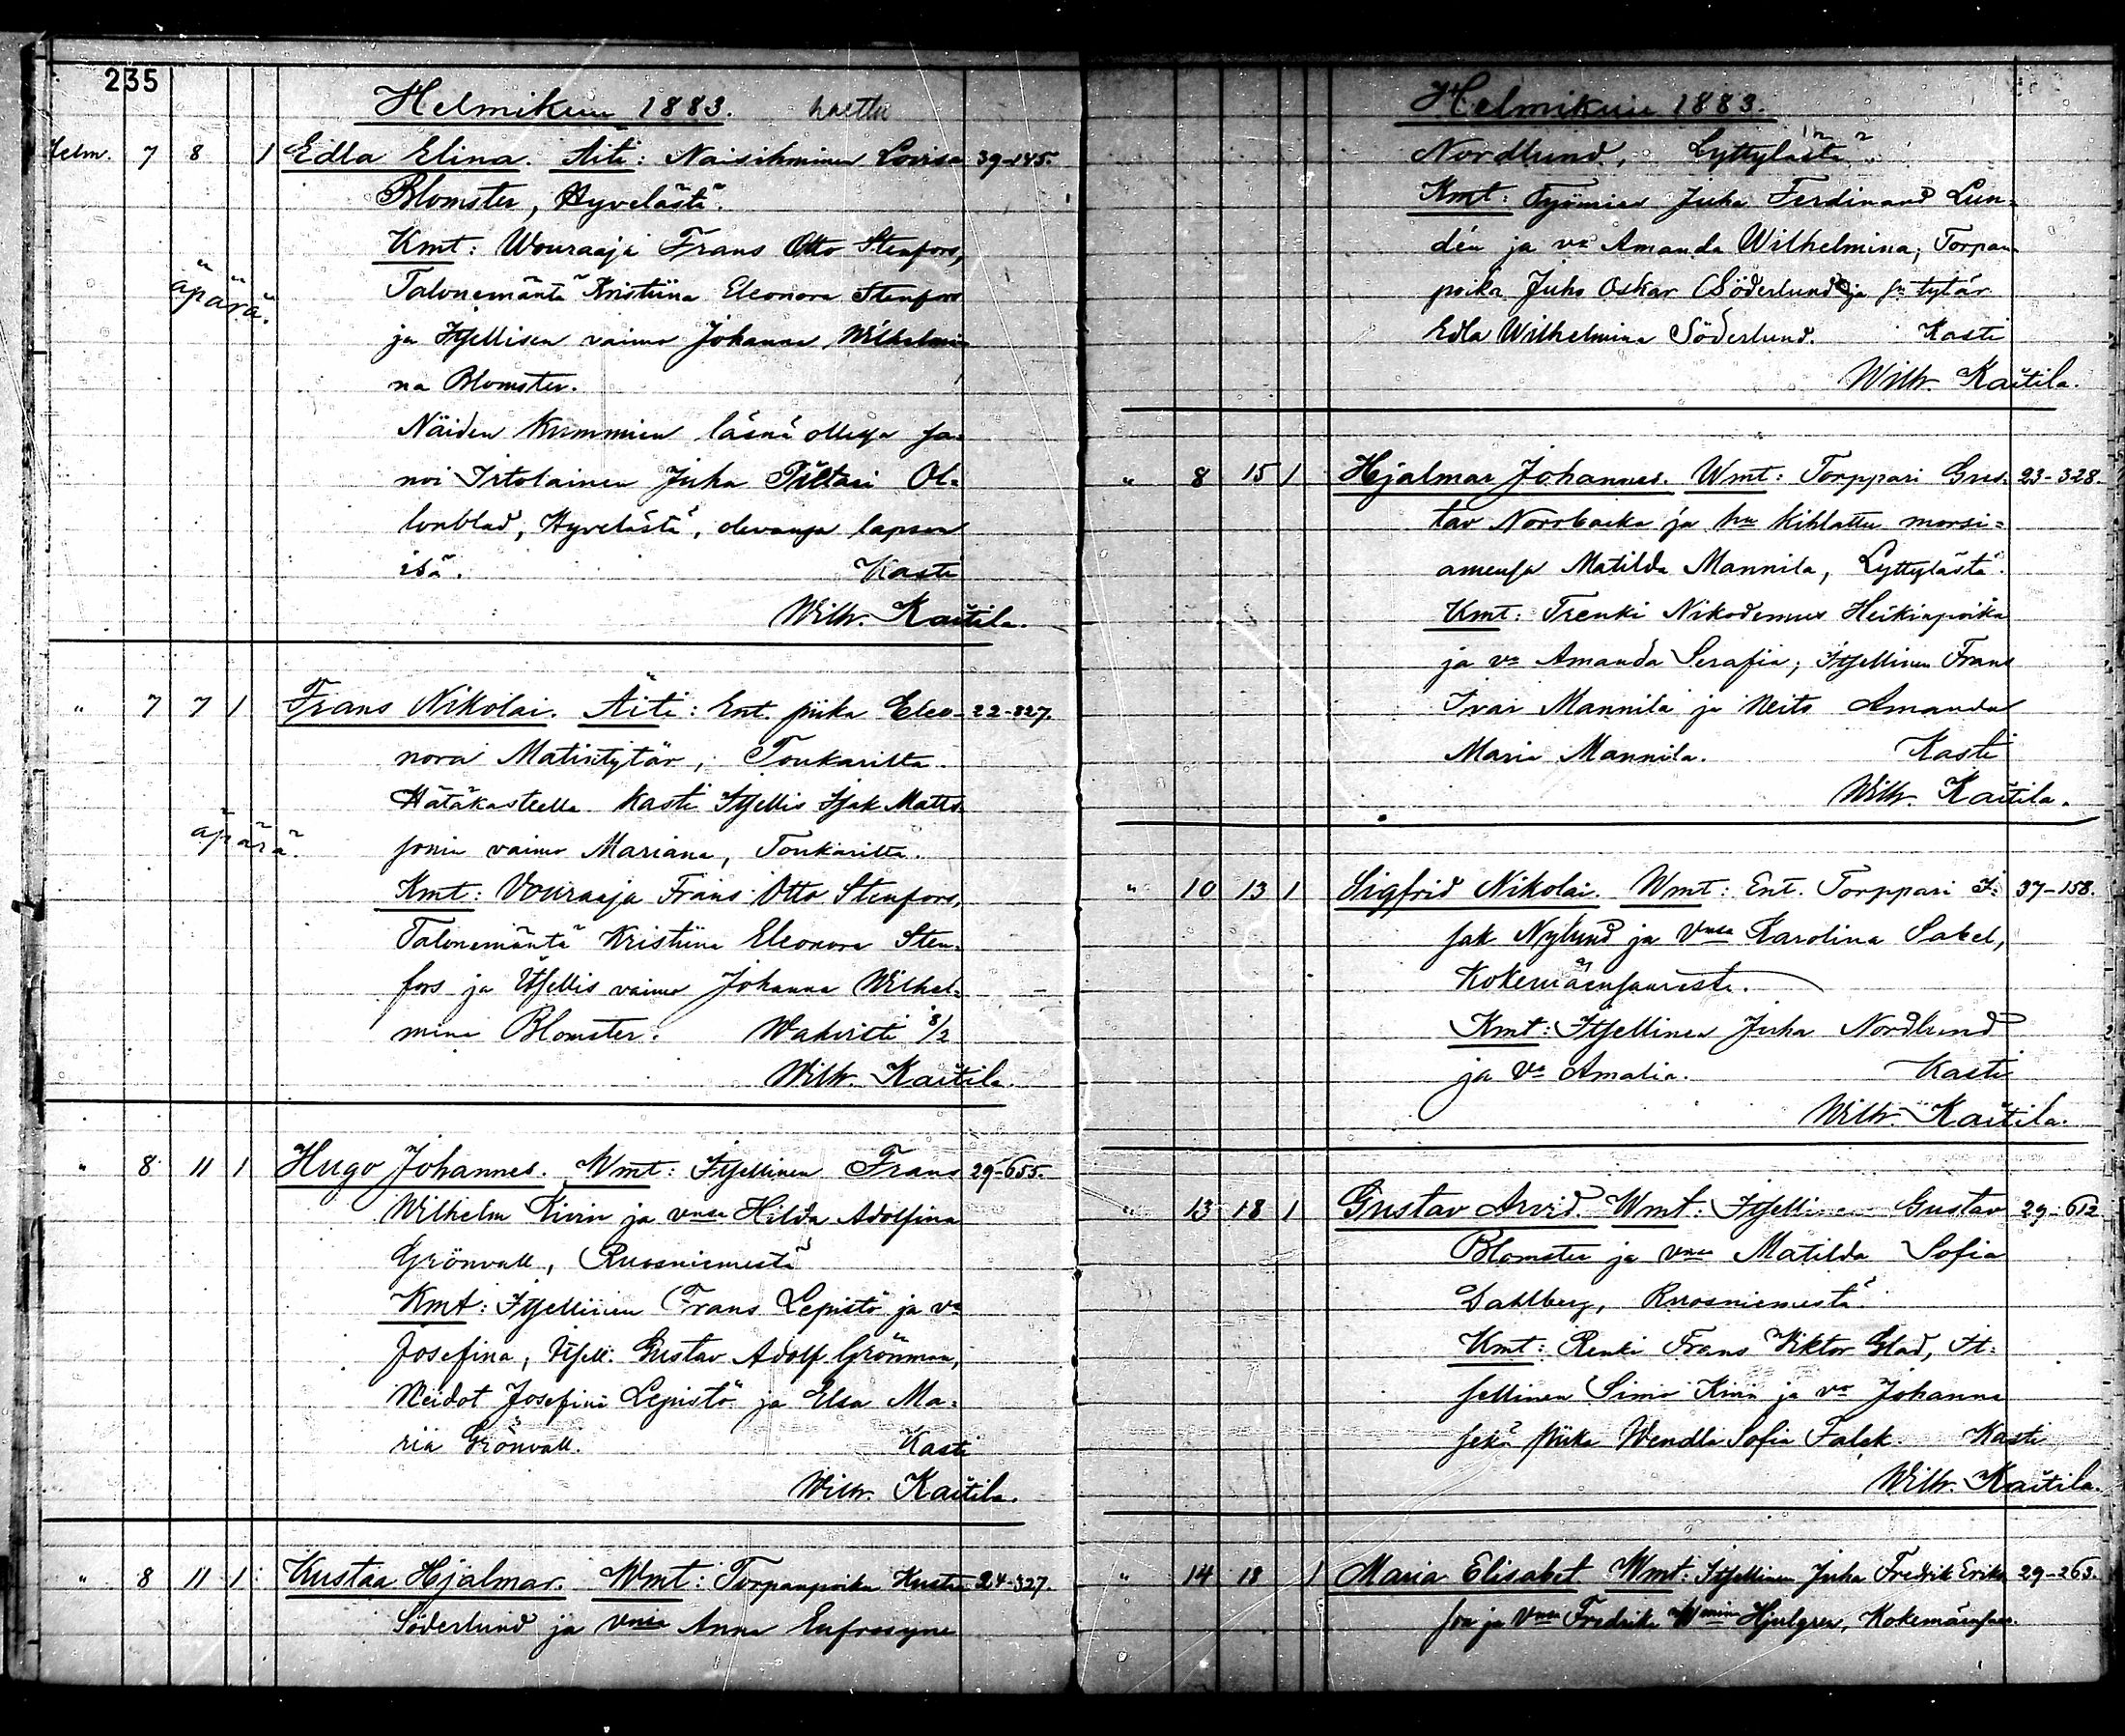 235
Helmikuu 1883.
Helm. 7 8 1 Edla Elina. Äiti: Naisihminen Lovisa 39-145.
Blomster, Hyvelästä.
Kmt: Wouraaja Frans Otto Stenfors,
Talonemäntä Kristiina Eleonora Stenfors
äpärä.
ja Itsellisen vaimo Johanna Wilhelmi-
na Blomster.
Näiden kummien läsnä ollessa sa-
noi Irtolainen Juha Taltari Ol-
lonblad, Hyvelästä, olevansa lapsen
isä. Kasti
Wilh. Kaitila.
" 7 7 1 Frans Nikolai. Äiti: Ent. piika Eleo- 22-327.
nora Matintytär, Toukarilta.
Hätäkasteella kasti Itsellis Isak Matts-
äpärä.
sonin vaimo Mariana, Toukarilta.
Kmt: Vouraaja Frans Otto Stenfors,
Talonemäntä Kristiina Eleonora Sten-
fors ja Itsellis vaimo Johanna Wilhel-
mina Blomster. Wahvisti 8/2
Wilh. Kaitila.
" 8 11 1 Hugo Johannes. Wmt: Itsellinen Frans 29-655.
Wilhelm Kivin ja vnsa Hilda Adolfina
Grönvall, Ruosniemestä
Kmt: Itsellinen Frans Lepistö ja va
Josefina, Itsell. Gustav Adolf Grönman,
Neidot Josefina Lepistö ja Elsa Ma-
ria Grönvall. Kasti
Wilh. Kaitila.
" 8 11 1 Kustaa Hjalmar. Wmt: Torpanpoika Kustaa 24-327.
Söderlund ja vnsa Anna Eufrosyne
Helmikuu 1883.
Nordlund, Lyttylästä.
Kmt: Työmies Juha Ferdinand Lun-
dén ja va Amanda Wilhelmina, Torpan-
poika Juho Oskar Söderlund ja tytär
Edla Wilhelmina Söderlund. Kasti
Wilh. Kaitila.
" 8 15 1 Hjalmar Johannes. Wmt: Torppari Gus- 23-328.
tav Norrbacka ja hn kihlattu morsi-
amensa Matilda Mannila, Lyttylästä.
Kmt: Trenki Nikodemus Heikinpoika
ja va Amanda Serafia; Itsellinen Frans
Ivar Mannila ja Neito Amanda
Maria Mannila. Kasti
Wilh. Kaitila.
" 10 13 1 Sigfrid Nikolai. Wmt: Ent. Torppari I- 37-158.
sak Nylund ja Vnsa Karolina Sabel,
Kokemäensaaresta.
Kmt: Itsellinen Juha Nordlund
ja Va Amalia. Kasti
Wilh. Kaitila.
" 13 18 1 Gustav Arvid. Wmt: Itsellinen Gustav 29-612
Blomster ja vnsa Matilda Sofia
Dahlberg, Ruosniemestä.
Kmt: Renki Frans Viktor Glad, It-
sellinen Simo Kivin ja va Johanna
sekä piika Wendla Sofia Falck. Kasti
Wilh. Kaitila.
" 14 18 1 Maria Elisabet Wmt: Itsellinen Juha Fredrik Eriks- 29-263.
son ja Vnsa Fredrika Wmina Hjulgren, Kokemäensaar.